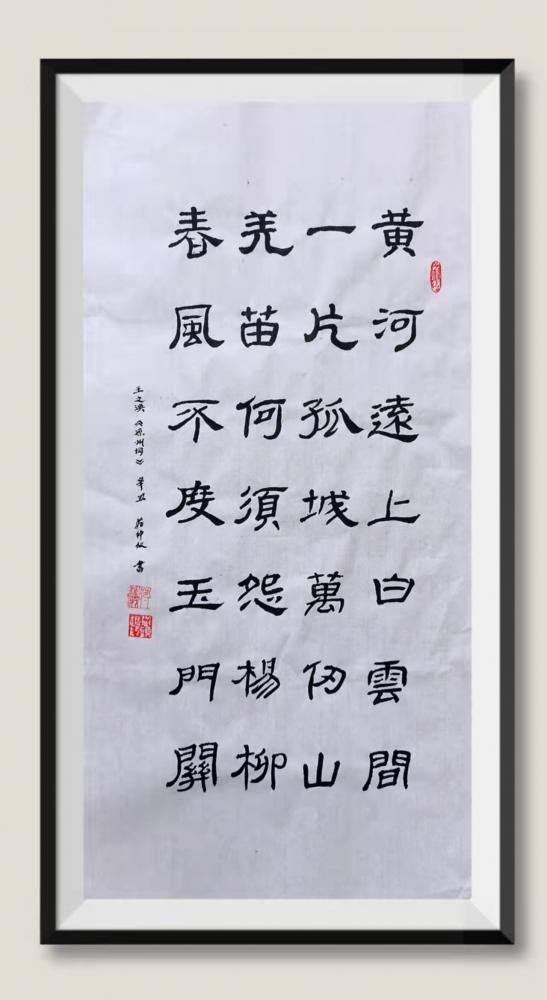 黄河遠上白雲間
一片孤城萬仞山
羌苗何須怨楊柳
春風不度玉門關
王之渙《凉州词》 辛丑 书